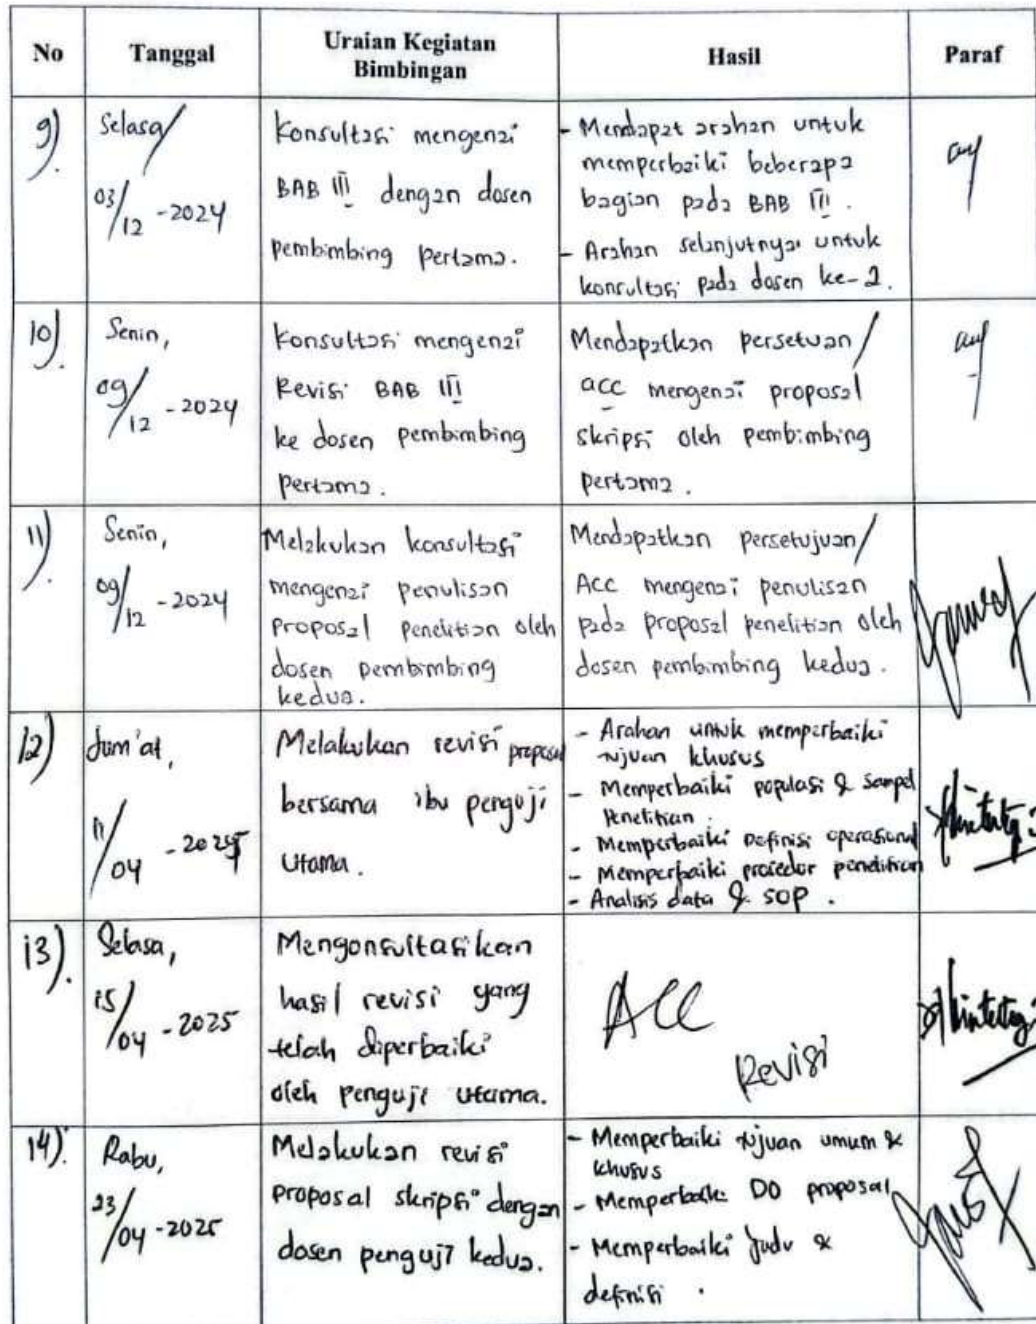 No Tanggal Uraian Kegiatan Bimbingan Hasil Paraf
9). Selasa/
03/12 - 2024
Konsultasi mengenai
BAB III dengan dosen
pembimbing pertama.
- Mendapat arahan untuk
memperbaiki beberapa
bagian pada BAB III.
- Arahan selanjutnya untuk
konsultasi pada dosen ke-2.
10). Senin,
09/12 - 2024
Konsultasi mengenai
Revisi BAB III
ke dosen pembimbing
pertama.
Mendapatkan persetuan/
acc mengenai proposal
skripsi oleh pembimbing
pertama.
11). Senin,
09/12 - 2024
Melakukan konsultasi
mengenai penulisan
proposal penelitian oleh
dosen pembimbing
kedua.
Mendapatkan persetujuan/
Acc mengenai penulisan
pada proposal penelitian oleh
dosen pembimbing kedua.
12) Jum'at,
11/04 - 2025
Melakukan revisi proposal
bersama ibu penguji
utama.
- Arahan untuk memperbaiki
tujuan khusus
- Memperbaiki populasi & sampel
Penelitian.
- Memperbaiki Definisi operasional
- Memperbaiki prosedur penelitian
- Analisis data & SOP.
13). Selasa,
15/04 - 2025
Mengonsultasikan
hasil revisi yang
telah diperbaiki
oleh penguji utama.
Acc
Revisi
14). Rabu,
23/04 - 2025
Melakukan revisi
proposal skripsi dengan
dosen penguji kedua.
- Memperbaiki tujuan umum &
khusus
- Memperbaiki DO proposal
- Memperbaiki Judu &
definisi.